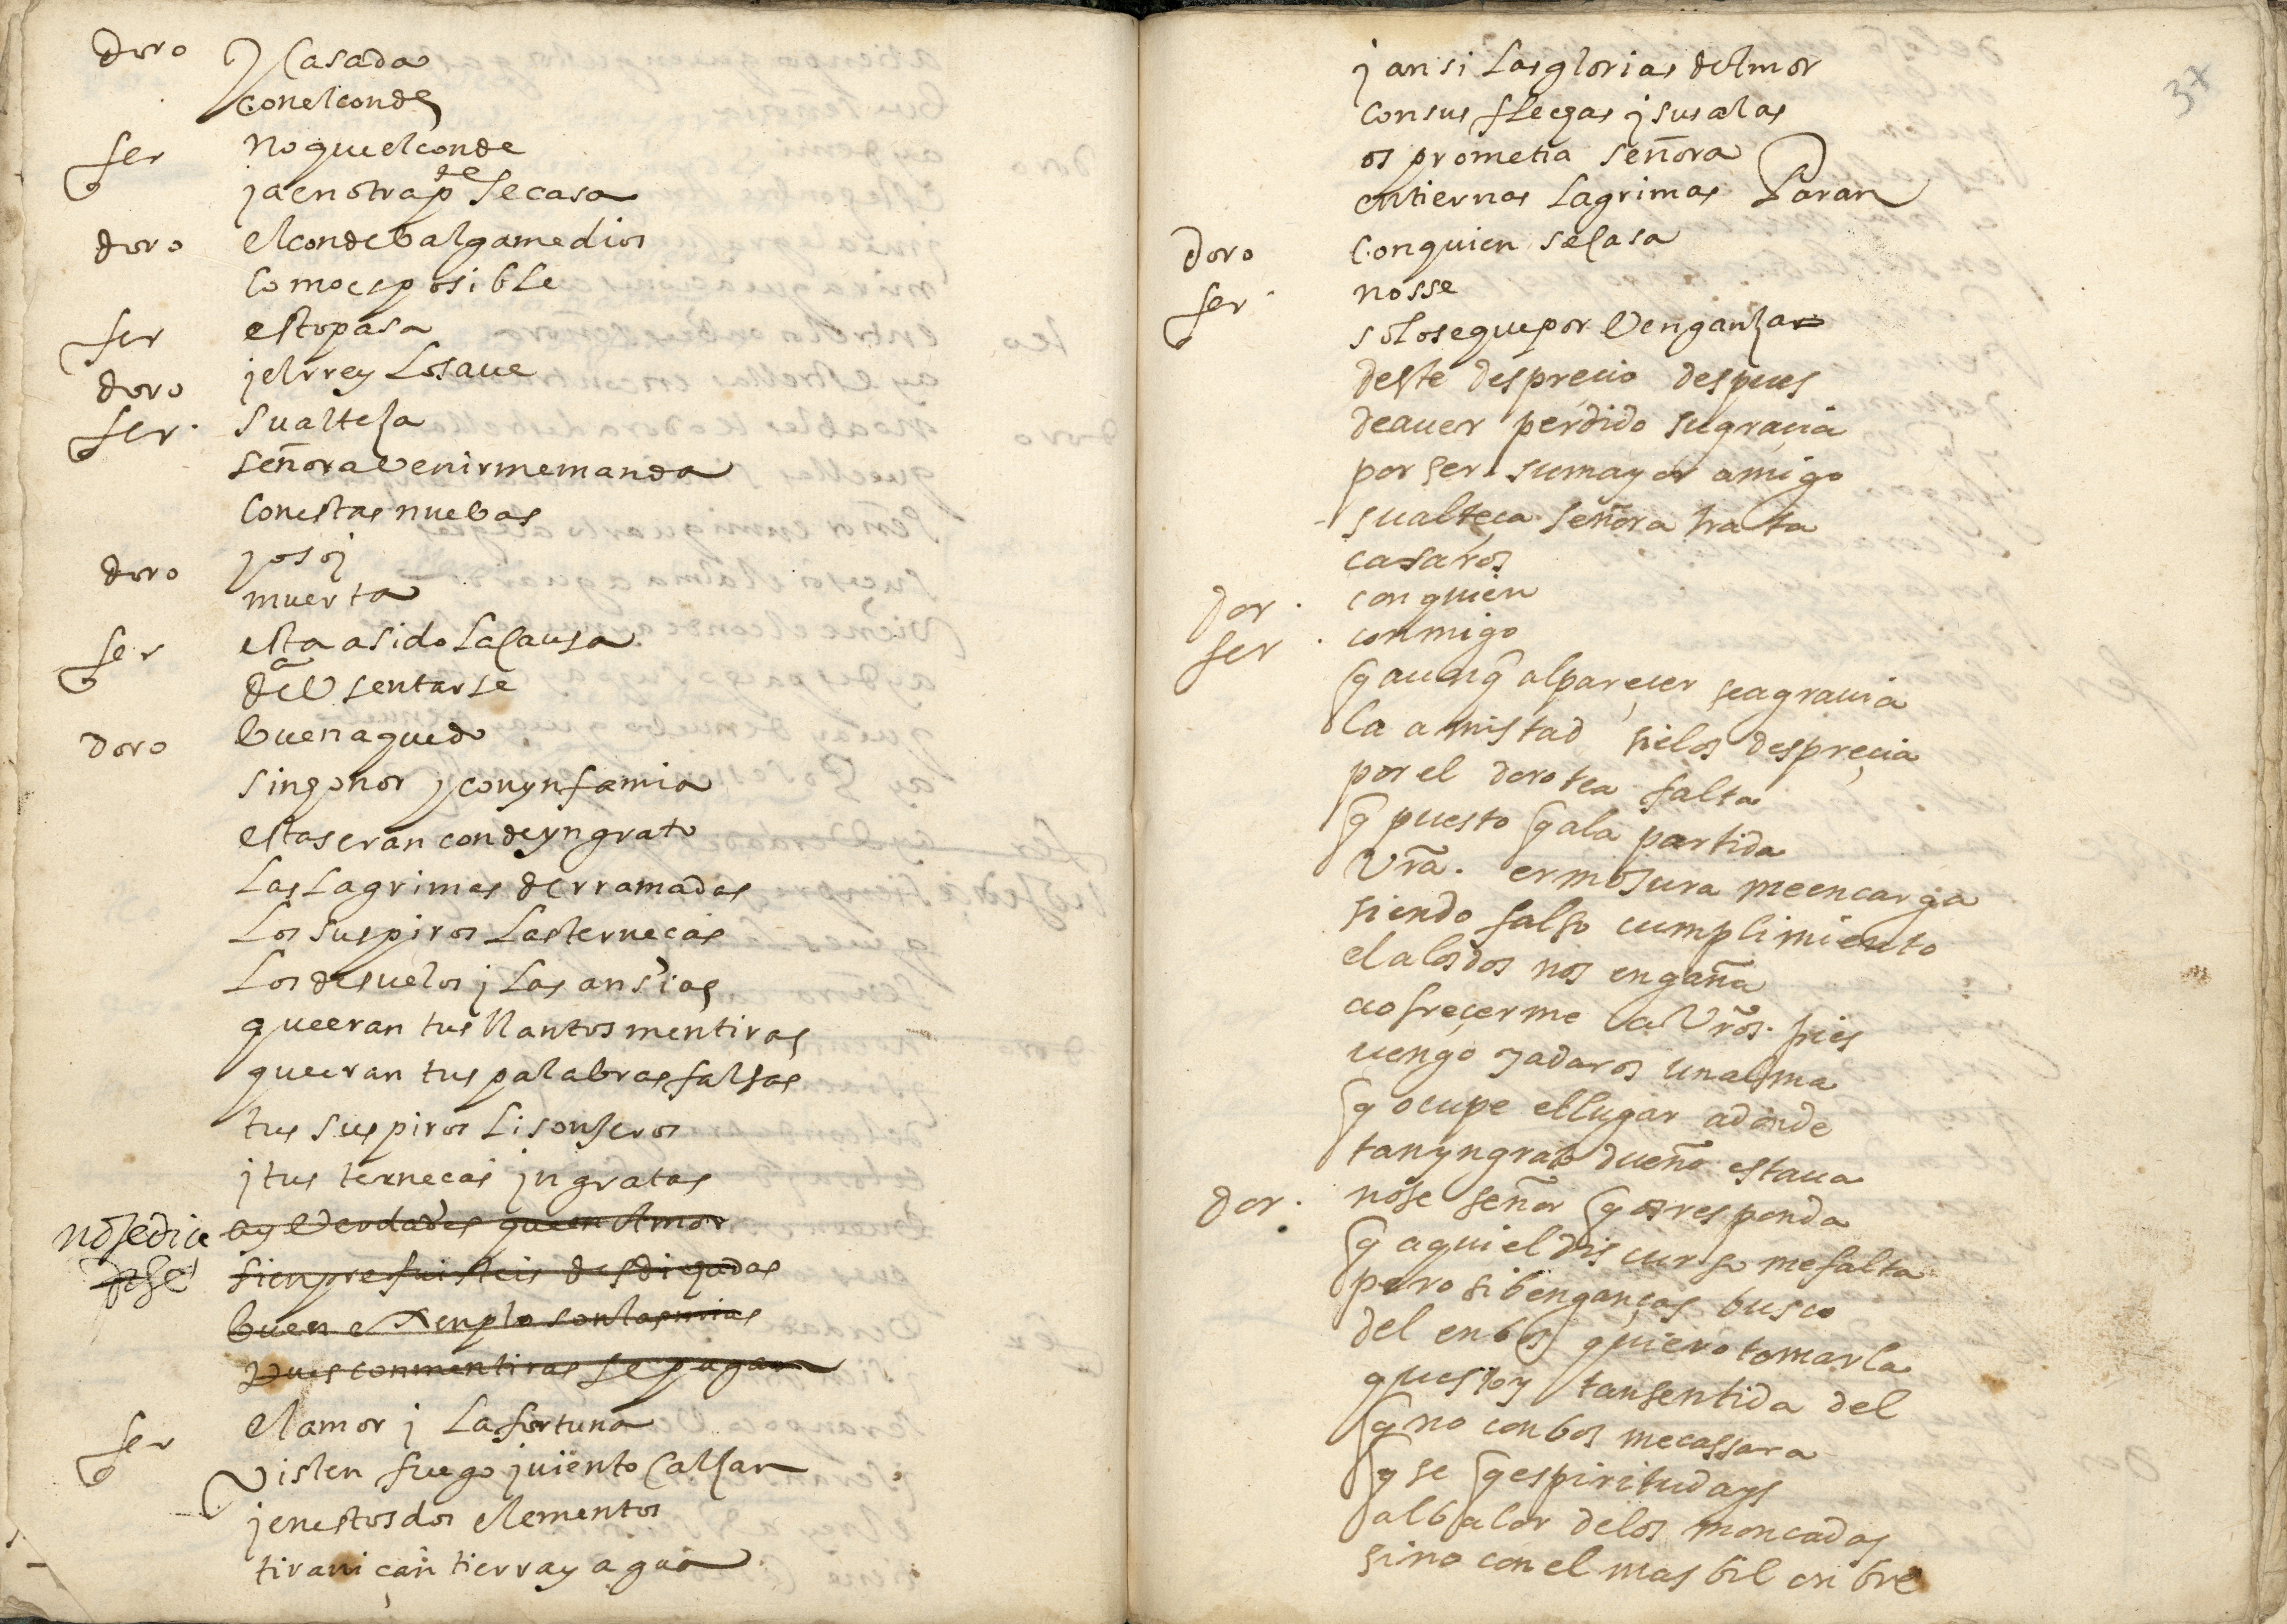 doro y casada
con el conde
fer no que el conde
ja en otra pte se casa
doro el conde balgame dios
como es posible
fer esto pasa
doro j el rrey lo saue
fer su alteza
señora venir me manda
con estas nuebas
doro yo soj
muerta
fer esta a sido la causa
de ausentarse
doro buena quedo
sin honor y con ynfamia
estas eran conde yngrato
las lagrimas derramadas
los suspiros las terneças
los desuelos j las ansias
que eran tus llantos mentiras
que eran tus palabras falsas
tus suspiros lisonjeros
j tus terneças jngratas
no se dice ay verdades que en amor
dise sienpre fuisteis desdichadas
buen exenplo son las mias
pues con mentiras se pagan
fer el amor j la fortuna
visten fuego j uiento calzan
j en estos dos elementos
tiraniçan tierra y agua
37
j ansi las glorias del mor
con sus flechas j sus alas
os prometia señora
en tiernas lagrimas paran
doro con quien se casa
fer no sse
solo se que por venganza
deste desprecio despues
de auer perdido su graçia
por ser su mayor amigo
su alteça señora trata
casaros
dor con quien
fer conmigo
q aunq al pareçer se agrauia
la amistad si el os despreçia
por el dorotea falta
q puesto q a la partida
vra. ermosura me encarga
siendo falso cumplimiento
el a los dos nos engaña
a ofreçerme a vros. pies
uengo y a daros un alma
q ocupe el lugar adonde
tan yngrato dueño estaua
dor no se señor q os responda
q aqui el discurso me falta
pero si benganças busco
del en bos quiero tomarla
que stoy tan sentida del
q no con bos me cassara
q se q espiritu days
al balor de los moncadas
sino con el mas bil onbre